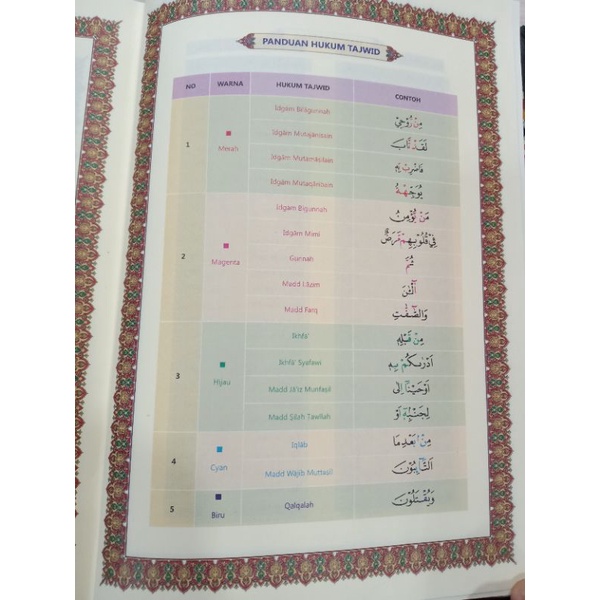 PANDUAN HUKUM TAJWID
NO WARNA HUKUM TAJWID CONTOH
1 Merah
Idgām Bilagunnah مِنْ رُوْحِيْ
Idgām Mutajānisain لَقَدْ تَّابَ
Idgām Mutamāṡilain فَاضْرِبْ بِّهٖ
Idgām Mutaqāribain يُوَجِّهْهُ
2 Magenta
Idgām Bigunnah مَنْ يُّؤْمِنُ
Idgām Mimi فِيْ قُلُوْبِهِمْ مَّرَضٌ
Gunnah ثُمَّ
Madd Lāzim آلْـٰٔنَ
Madd Farq وَالصّٰۤفّٰتِ
3 Hijau
Ikhfā' مِنْ قَبْلِهٖ
Ikhfā' Syafawi اَدْرٰىكُمْ بِهٖ
Madd Jā'iz Munfaṣil اَوْحَيْنَآ اِلٰى
Madd Ṣilah Ṭawīlah لِجَنْۢبِهٖٓ اَوْ
4 Cyan
Iqlāb مِنْۢ بَعْدِ مَا
Madd Wājib Muttaṣil التَّاۤىِٕبُوْنَ
5 Biru
Qalqalah وَيُقْتَلُوْنَ